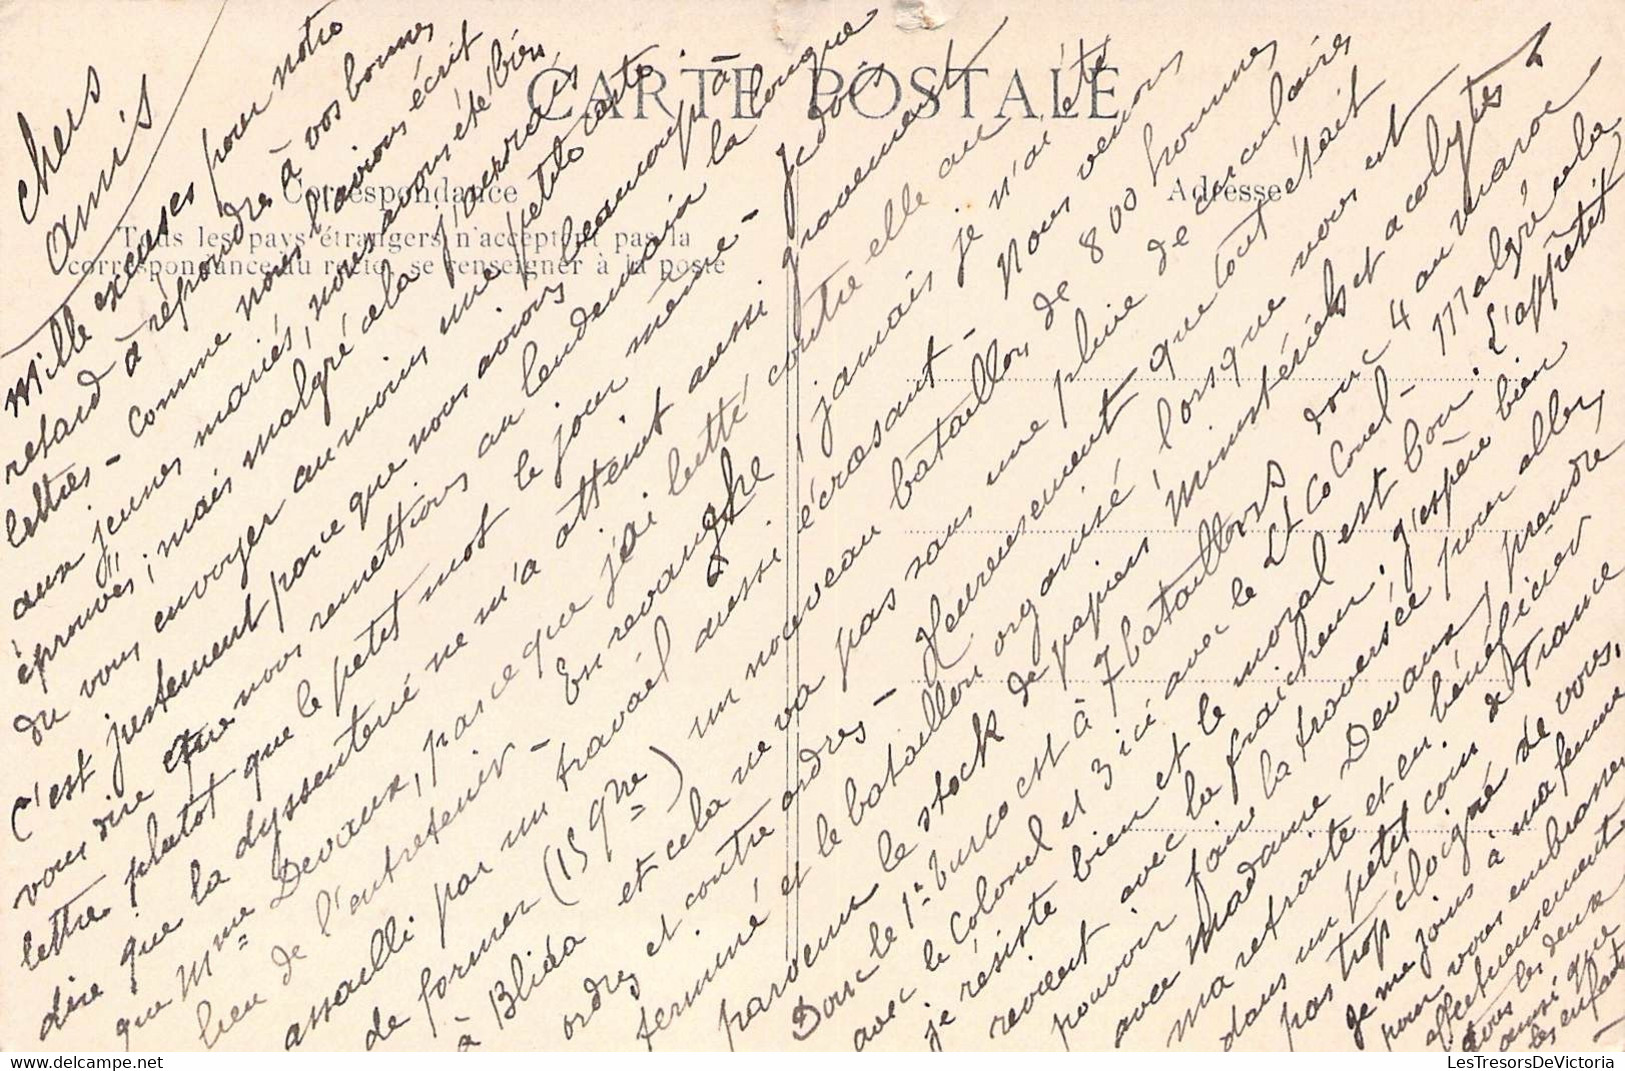 CARTE POSTALE
Correspondance
Adresse
Tous les pays étrangers n'acceptent pas la
correspondance au recto, se renseigner à la poste
Chers
amis
Mille excuses pour notre
retard à répondre à vos bonnes
lettres - Comme nous l'avions écrit
aux jeunes mariés, nous avons été bien
éprouvés; mais malgré cela j'aurais
du vous envoyer au moins une petite carte.
C'est justement parce que nous avions beaucoup à
vous dire que nous remettions au lendemain la longue
lettre plutot que le petit mot le jour même - Je dois
dire que la dyssenterie ne m'a atteint aussi gravement
que Mme Devaux, parce que j'ai lutté contre elle au
lieu de l'entretenir - En revanghe, jamais je n'ai été
assailli par un travail aussi écrasant - Nous venons
de former (15 9bre) un nouveau bataillon de 800 hommes
à Blida et cela ne va pas sans une pluie de circulaires
ordres et contre ordres - Heureusement que tout était
terminé et le bataillon organisé, lorsque nous est
parvenu le stock de papiers Ministériels et acolytes
Donc le 1er Turco est à 7 bataillons dont 4 au Maroc
avec le Colonel et 3 ici avec le Lt Colonel - Malgré cela
je résiste bien et le moral est bon. L'appétit
revient avec la fraicheur. J'espère bien
pouvoir faire la traversée pour aller,
avec Madame Devaux, prendre
ma retraite et en bénéficier
dans un petit coin de France
pas trop éloigné de vous.
Je me joins à ma femme
pour vous embrasser
affectueusement
tous les deux
ainsi que
les enfants
LesTresorsDeVictoria